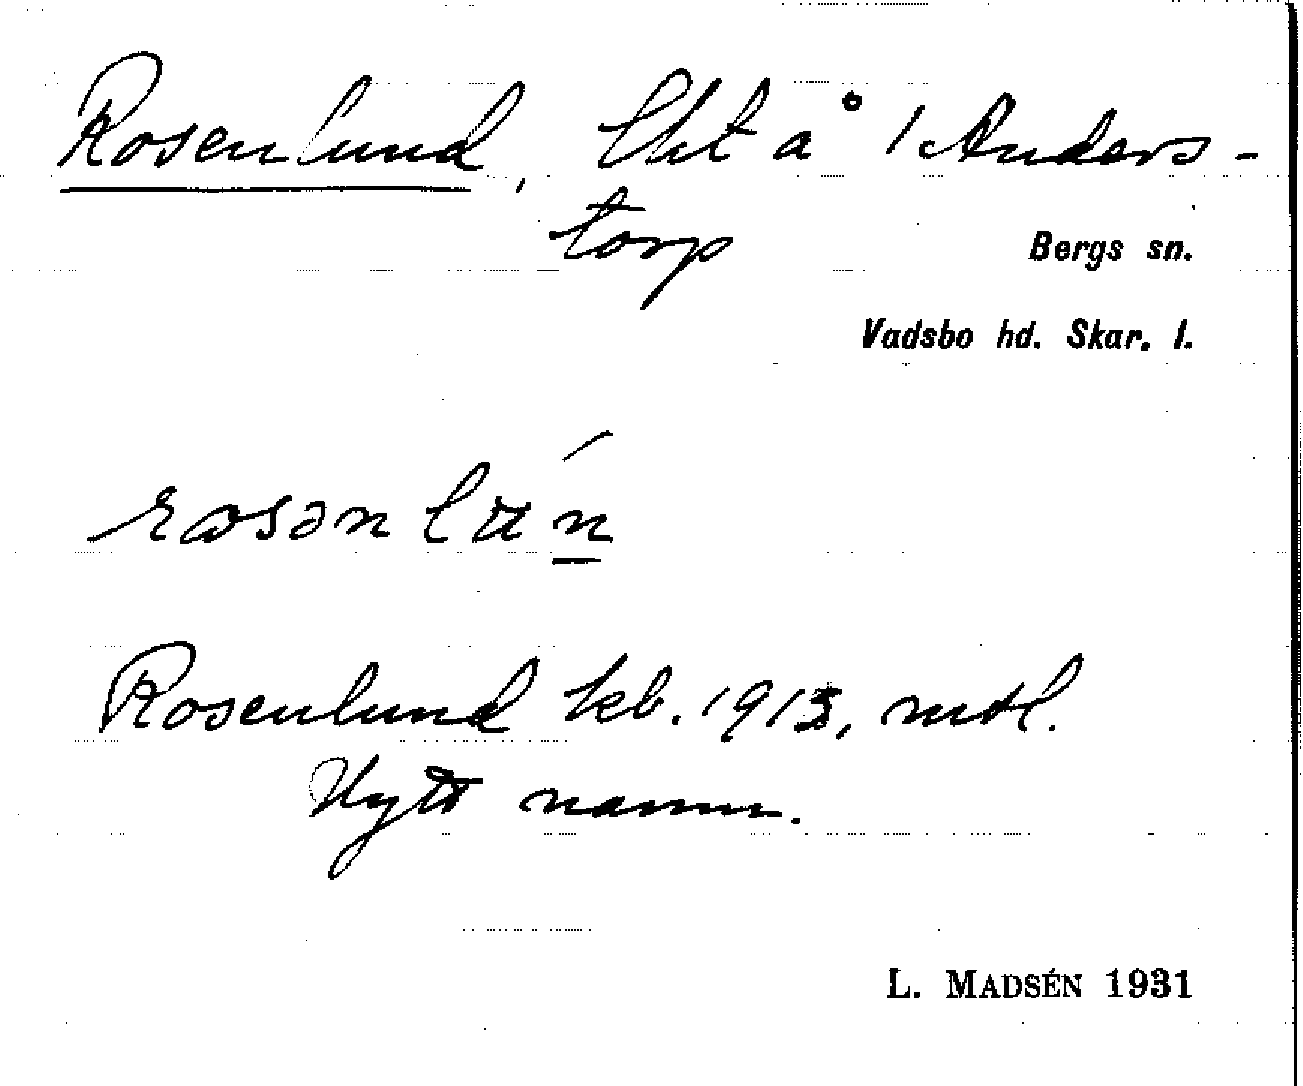 Rosenlund, Lht å 1 Anders-
torp
Bergs sn.
Vadsbo hd. Skar. l.
Rosenlund kb. 1913, mtl.
Nytt namn.
L. MADSÉN 1931